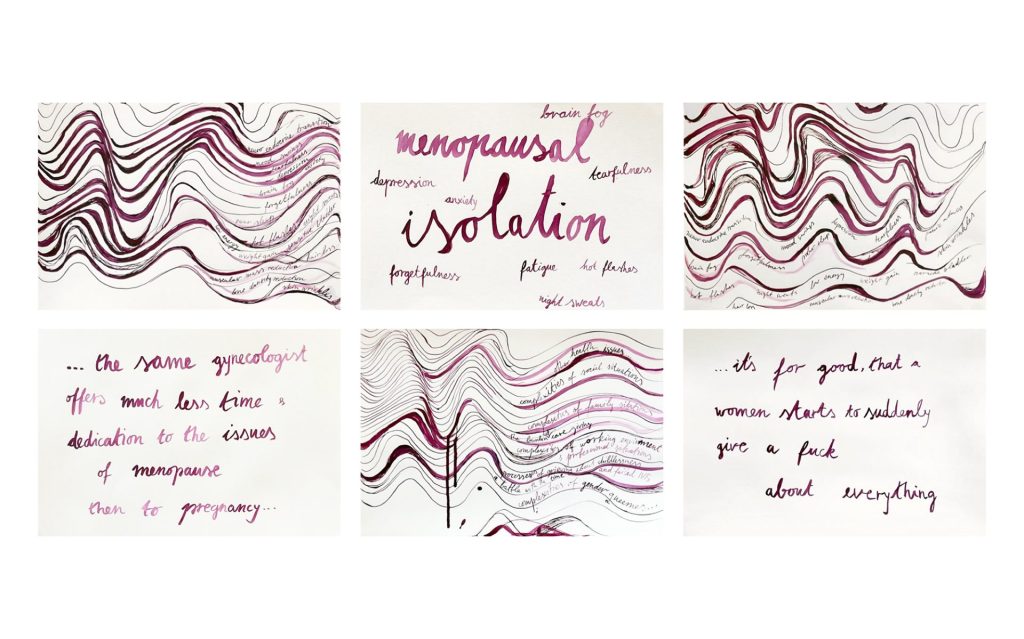 neuro endocrine transition
mood swings
tearfulness
depression
anxiety
brain fog
forgetfulness
poor sleep
night sweats
hot flashes
low energy
weight gain
sensitive bladder
hair loss
muscular mass reduction
bone density reduction
skin wrinkles
brain fog
menopausal
depression
tearfulness
anxiety
isolation
forgetfulness
fatigue
hot flashes
night sweats
neuro endocrine transition
mood swings
depression
tearfulness
brain fog
forgetfulness
poor sleep
skin wrinkles
hot flashes
night sweats
low energy
weight gain
sensitive bladder
hair loss
bone density reduction
... the same gynecologist
offers much less time &
dedication to the issues
of menopause
then to pregnancy...
other health issues
complexities of social situations
complexities of family situations
complexities of working environment
& professional
processes of
a battle with the time
complexities of gender queerness...
...it's for good, that a
women starts to suddenly
give a fuck
about everything